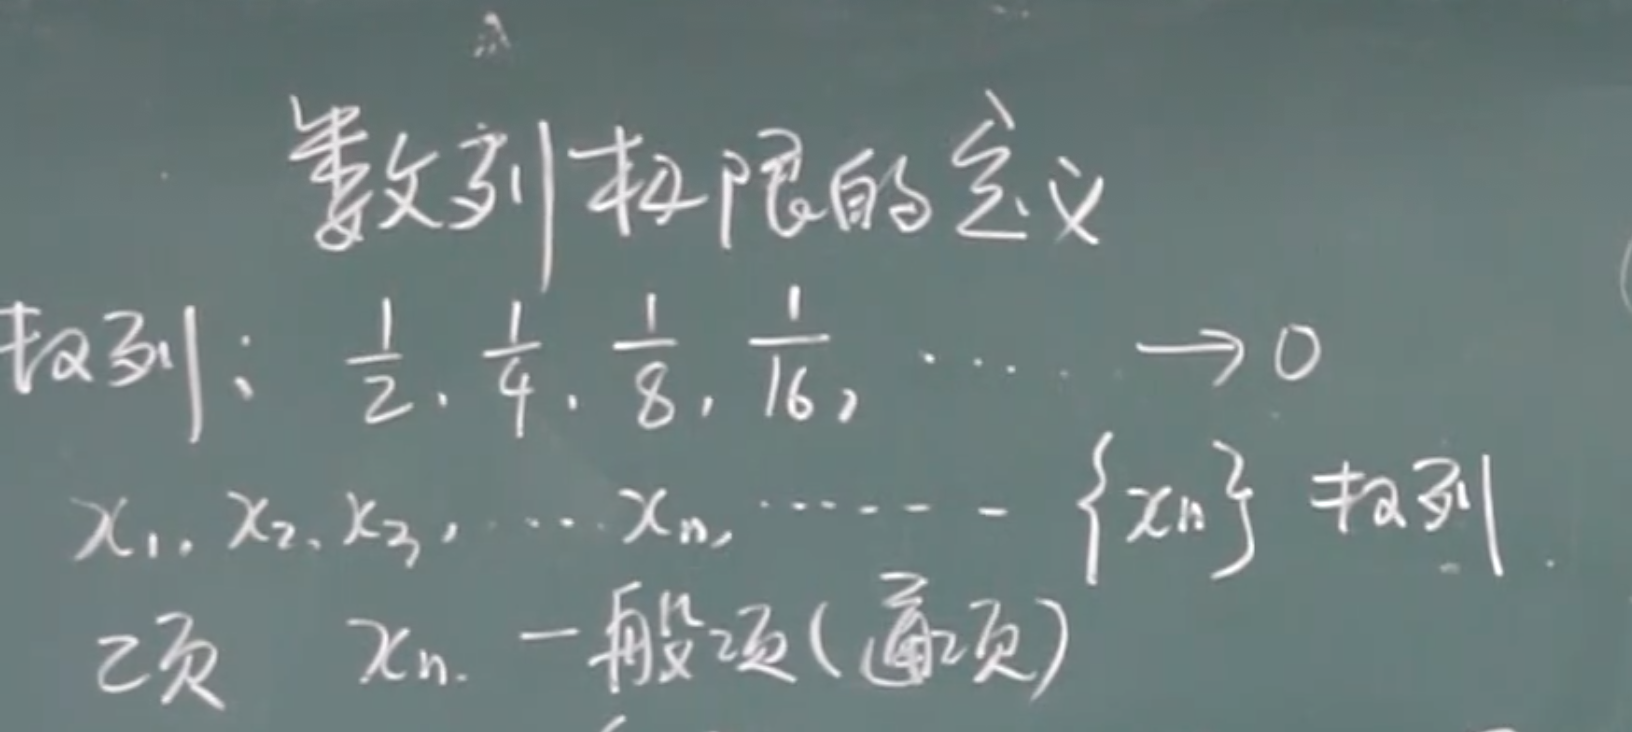 数列极限的定义
数列: 1/2, 1/4, 1/8, 1/16, ⋯ → 0
x₁, x₂, x₃, ⋯ xₙ, ⋯⋯ {xₙ} 数列.
项 xₙ. 一般项(通项)